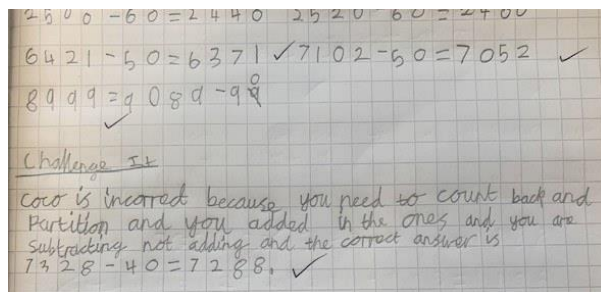 2500-60=2440 2520-60=2400
6421-50=6371 ✓ 7102-50=7052 ✓
8999=9089-90
✓
Challenge It
Coco is incorrect because you need to count back and
Partition and you added in the ones and you are
Subtracting not adding and the correct answer is
7328-40=7288. ✓